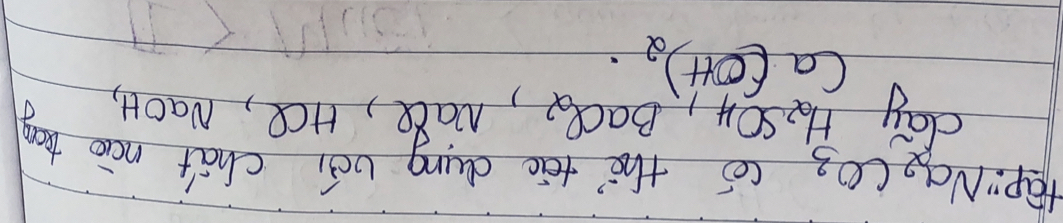 tập: Na2CO3 có thể tác dụng với chất nào trong
dãy H2SO4, BaCl2, NaCl, HCl, NaOH,
Ca(OH)2.